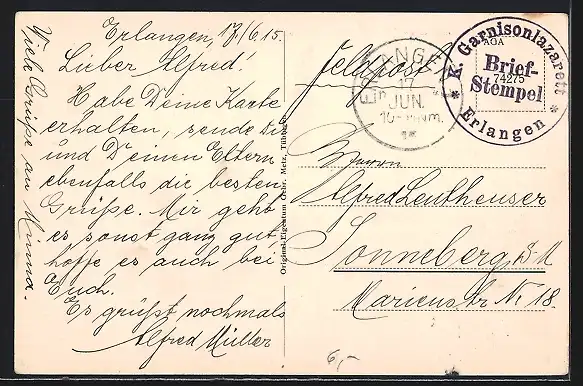 Erlangen, 17./6.15.
Lieber Alfred!
Habe Deine Karte
erhalten, sende Dir
und Deinen Eltern
ebenfalls die besten
Grüße. Mir geht
es sonst ganz gut,
hoffe es auch bei
Euch.
Es grüßt nochmals
Alfred Müller
Viele Grüße an Minna.
Original-Eigentum Gebr. Metz, Tübingen
Feldpost
17
JUN.
10-11 Vm.
15
K. Garnisonlazarett
AGA
Brief-
74275
Stempel
* Erlangen *
Herrn
Alfred Leutheuser
Sonneberg S. M.
Marienstr No 18.
6,-